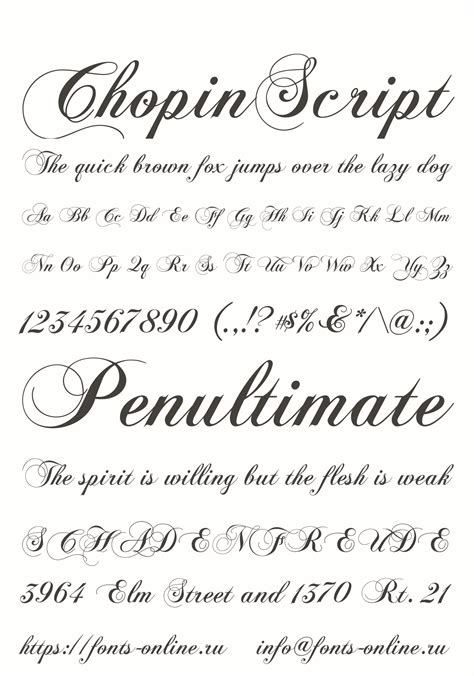 ChopinScript
The quick brown fox jumps over the lazy dog
Aa Bb Cc Dd Ee Ff Gg Hh Ii Jj Kk Ll Mm
Nn Oo Pp Qq Rr Ss Tt Uu Vv Ww Xx Yy Zz
1234567890 (.,!?#$%&*/\@:;)
Penultimate
The spirit is willing but the flesh is weak
SCHADENFREUDE
3964 Elm Street and 1370 Rt. 21
https://fonts-online.ru info@fonts-online.ru